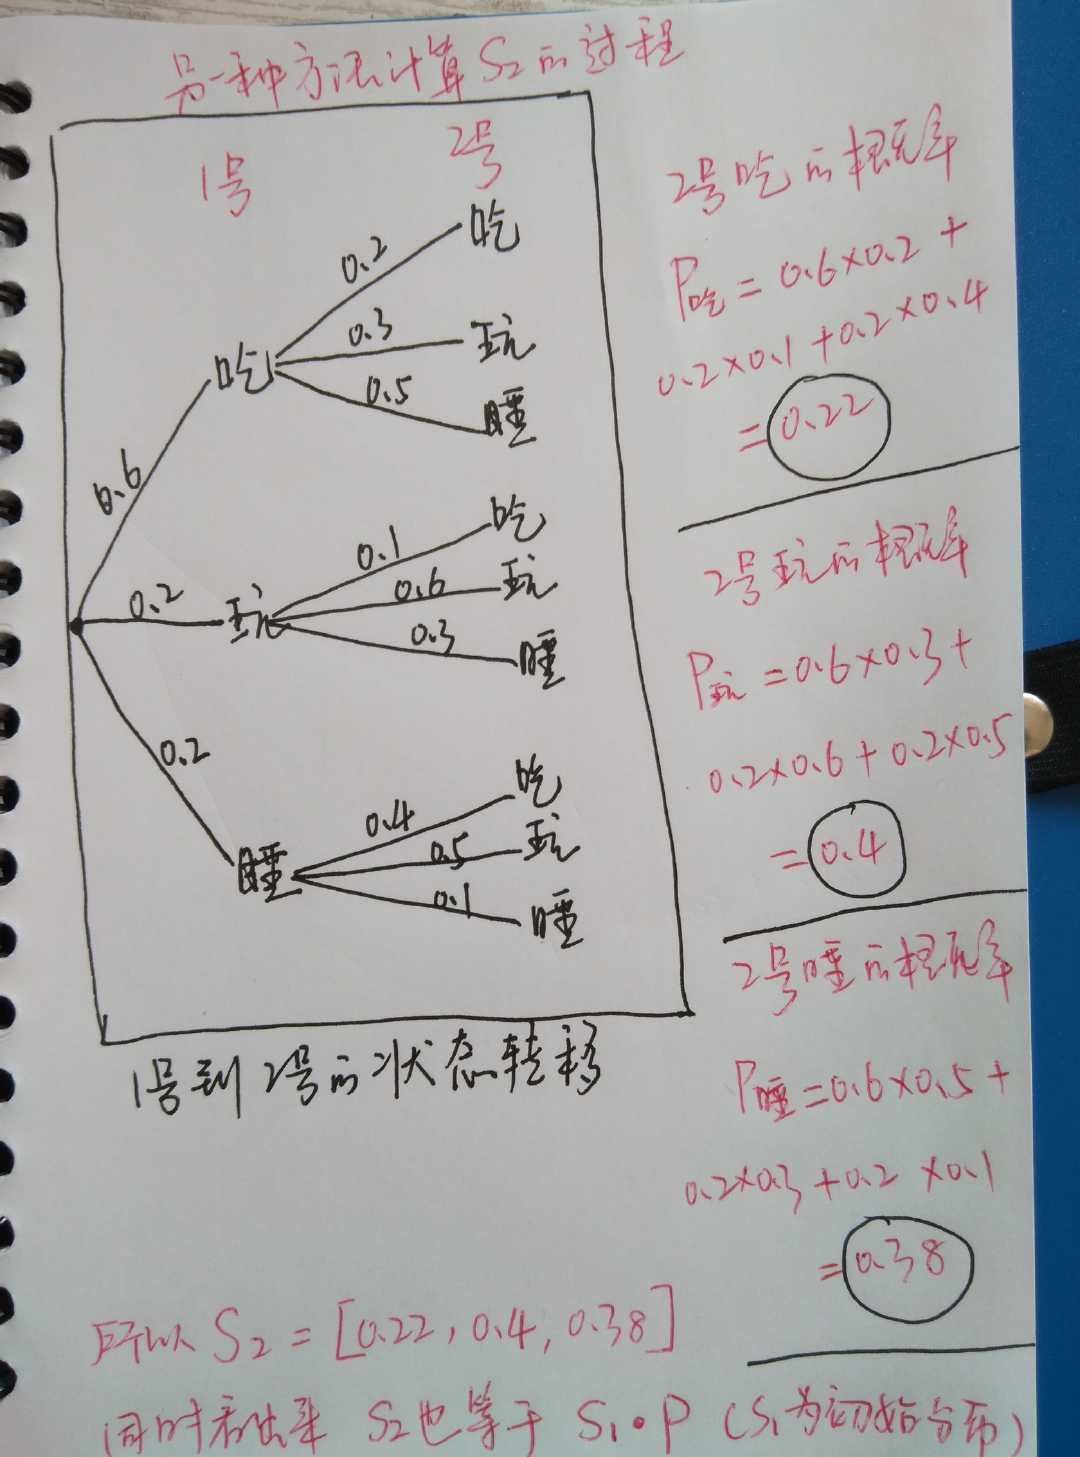 另一种方法计算S₂的过程
1号 2号
0.2 吃
0.3 玩
吃 0.5 睡
0.6
0.1 吃
0.2 玩 0.6 玩
0.3 睡
0.2
0.4 吃
睡 0.5 玩
0.1 睡
1号到2号的状态转移
2号吃的概率
P吃=0.6×0.2+
0.2×0.1+0.2×0.4
=0.22
2号玩的概率
P玩=0.6×0.3+
0.2×0.6+0.2×0.5
=0.4
2号睡的概率
P睡=0.6×0.5+
0.2×0.3+0.2×0.1
=0.38
所以S₂=[0.22,0.4,0.38]
同时看出来 S₂也等于 S₁·P (S₁为初始分布)